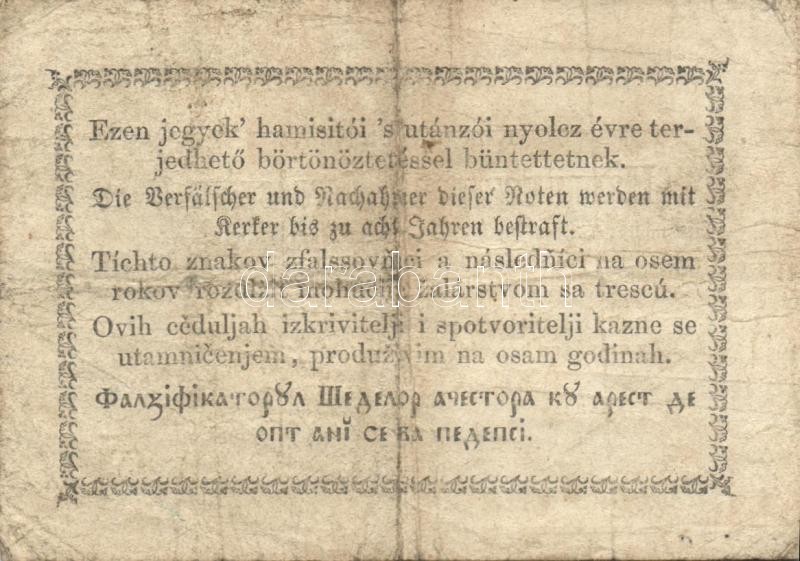 Ezen jegyek' hamisitói 's utánzói nyolcz évre ter-
jedhető börtönöztetéssel büntettetnek.
Die Verfälscher und Nachahmer dieser Noten werden mit
Kerker bis zu acht Jahren bestraft.
Tíchto znakov zfalssovňíci a následňíci na osem
rokov rozdlžit žalarstvom sa trescú.
Ovih cěduljah izkrivitelji i spotvoritelji kazne se
utamničenjem, produživim na osam godinah.
Фалꙁіфікаторꙋл Шеделор ачестора кꙋ арест де
опт анĭ се ва педепсі.
databanh